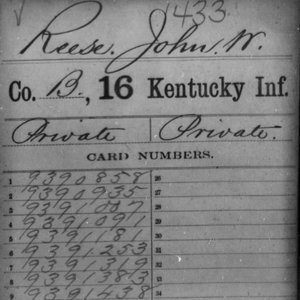 1433
Reese, John W.
Co. B, 16 Kentucky Inf.
Private Private.
CARD NUMBERS.
1 9390858 26
2 9390935 27
3 9391007 28
4 9391091 29
5 9391181 30
6 9391253 31
7 9391319 32
8 9391383 33
9 9391438 34